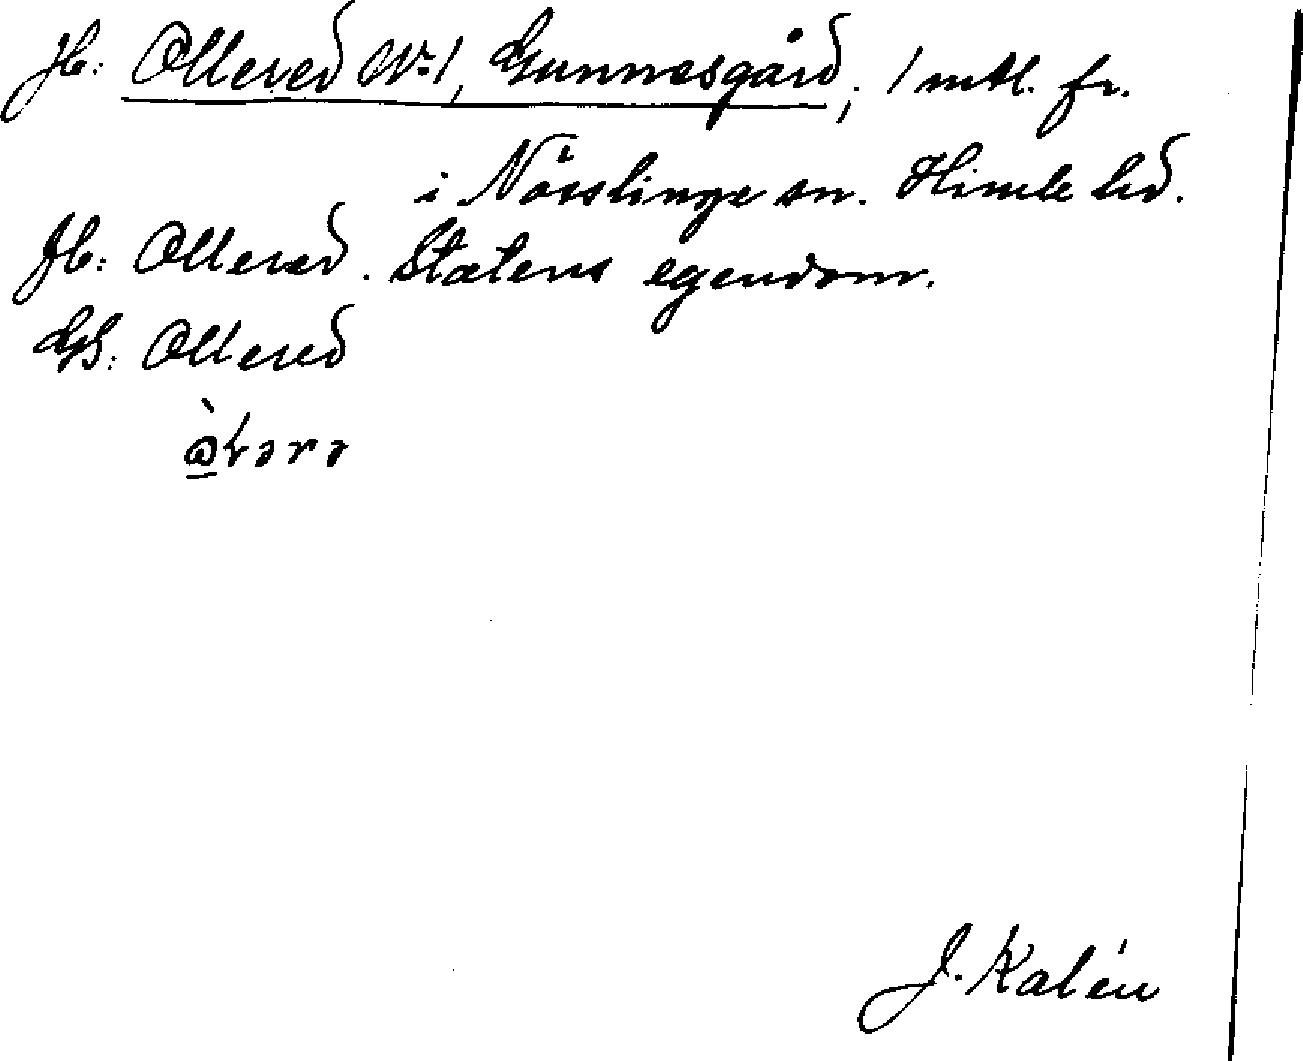 Jb: Ollered Nr 1, Gunnasgård; 1 mtl. fr.
i Nösslinge sn. Himle hd.
Jb: Ollered. Statens egendom.
GS: Ollered
J. Kalén